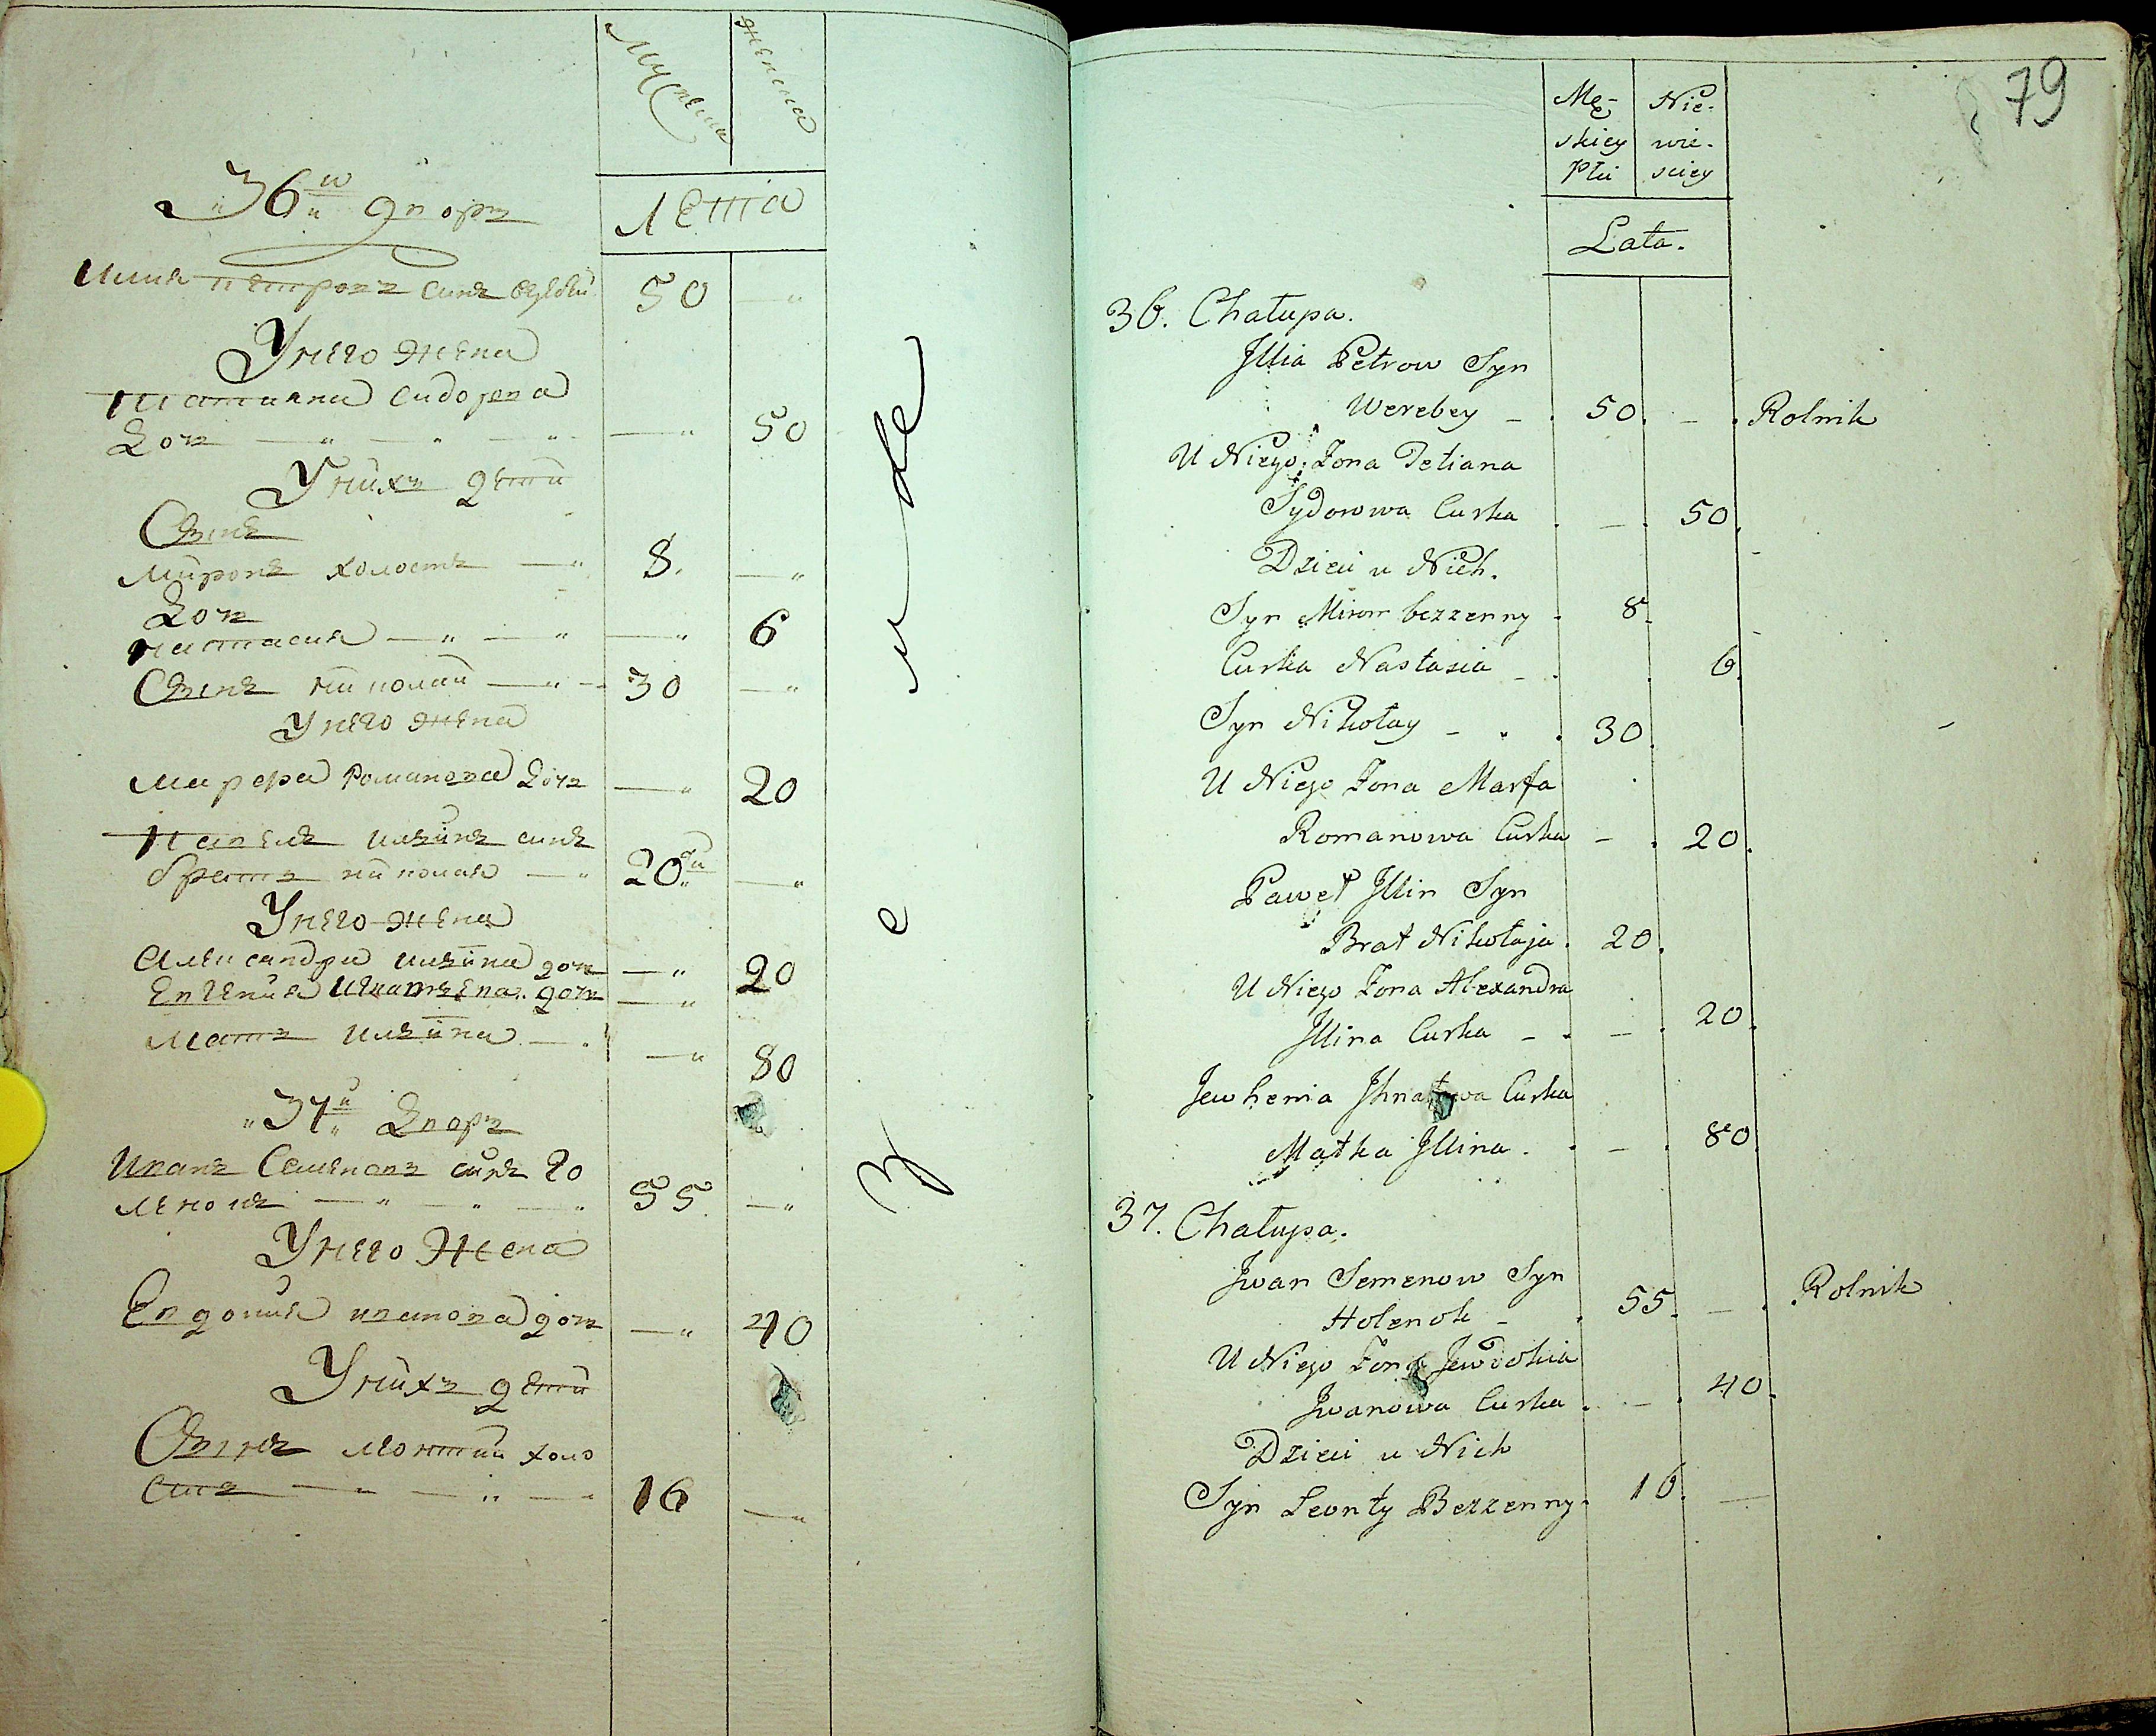 Мужска
женска
36й дворъ
Лета
Илия петровъ синъ 50
Унего жена
татияна сидорова
Доч 50
Унихъ дети
Синъ
миронъ холостъ 8
Доч
настасия 6
Синъ николай 30
Унего жена
марфа романова Доч 20
павелъ ильинъ синъ
братъ николая 20
Унего жена
Александра ильина доч 20
Евгения доч
мать ильина 80
37й Дворъ
Иванъ Семеновъ синъ Го
ленокъ 55
Унего Жена
Евдокия иванова доч 40
Унихъ дети
Синъ леонтий холо
стъ 16
79
Mę- Nie-
skiey wie-
Płci sciey
Lata.
36. Chałupa.
Jllia Petrow Syn
Werebey - 50. - Rolnik
U Niego Zona Tetiana
Sydorowa Curka - 50.
Dzieci u Nich.
Syn Miron bezzenny 8
Curka Nastasia 6.
Syn Nikołay 30.
U Niego Zona Marfa
Romanowa Curka - 20.
Paweł Jllin Syn
Brat Nikołaja. 20.
U Niego Zona Alexandra
Jllina Curka - - 20.
Jewhenia Jhnatowa Curka
Matka Jllina. - 80.
37. Chałupa.
Jwan Semenow Syn
Holenok - 55. - Rolnik
U Niego Zona Jewdokia
Jwanowa Curka. - 40.
Dzieci u Nich
Syn Leonty Bezzenny. 16. -